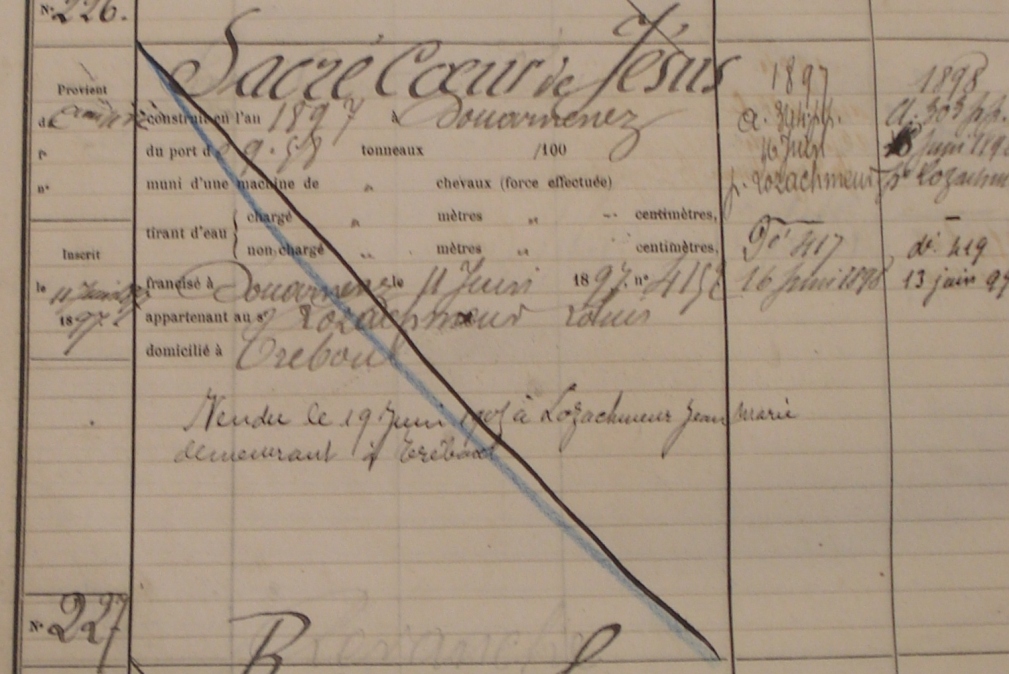 N° 226.
Sacré Cœur de Jésus
1897
1898
Provient
de
construit en l'an 1897 à Douarnenez
du port de 9.58 tonneaux /100
muni d'une machine de " chevaux (force effectuée)
n°
tirant d'eau { chargé " mètres " centimètres,
non chargé " mètres " centimètres,
Inscrit
le 11 Juin
1897
francisé à Douarnenez le 11 Juin 1897. n°
appartenant au sr Lozachmeur Louis
domicilié à Tréboul
16 Juin
p. Lozachmeur
417
16 Juin 1898
juin
do 419
13 juin
Vendu le 19 Juin à Lozachmeur Jean Marie
demeurant à Tréboul
N° 227